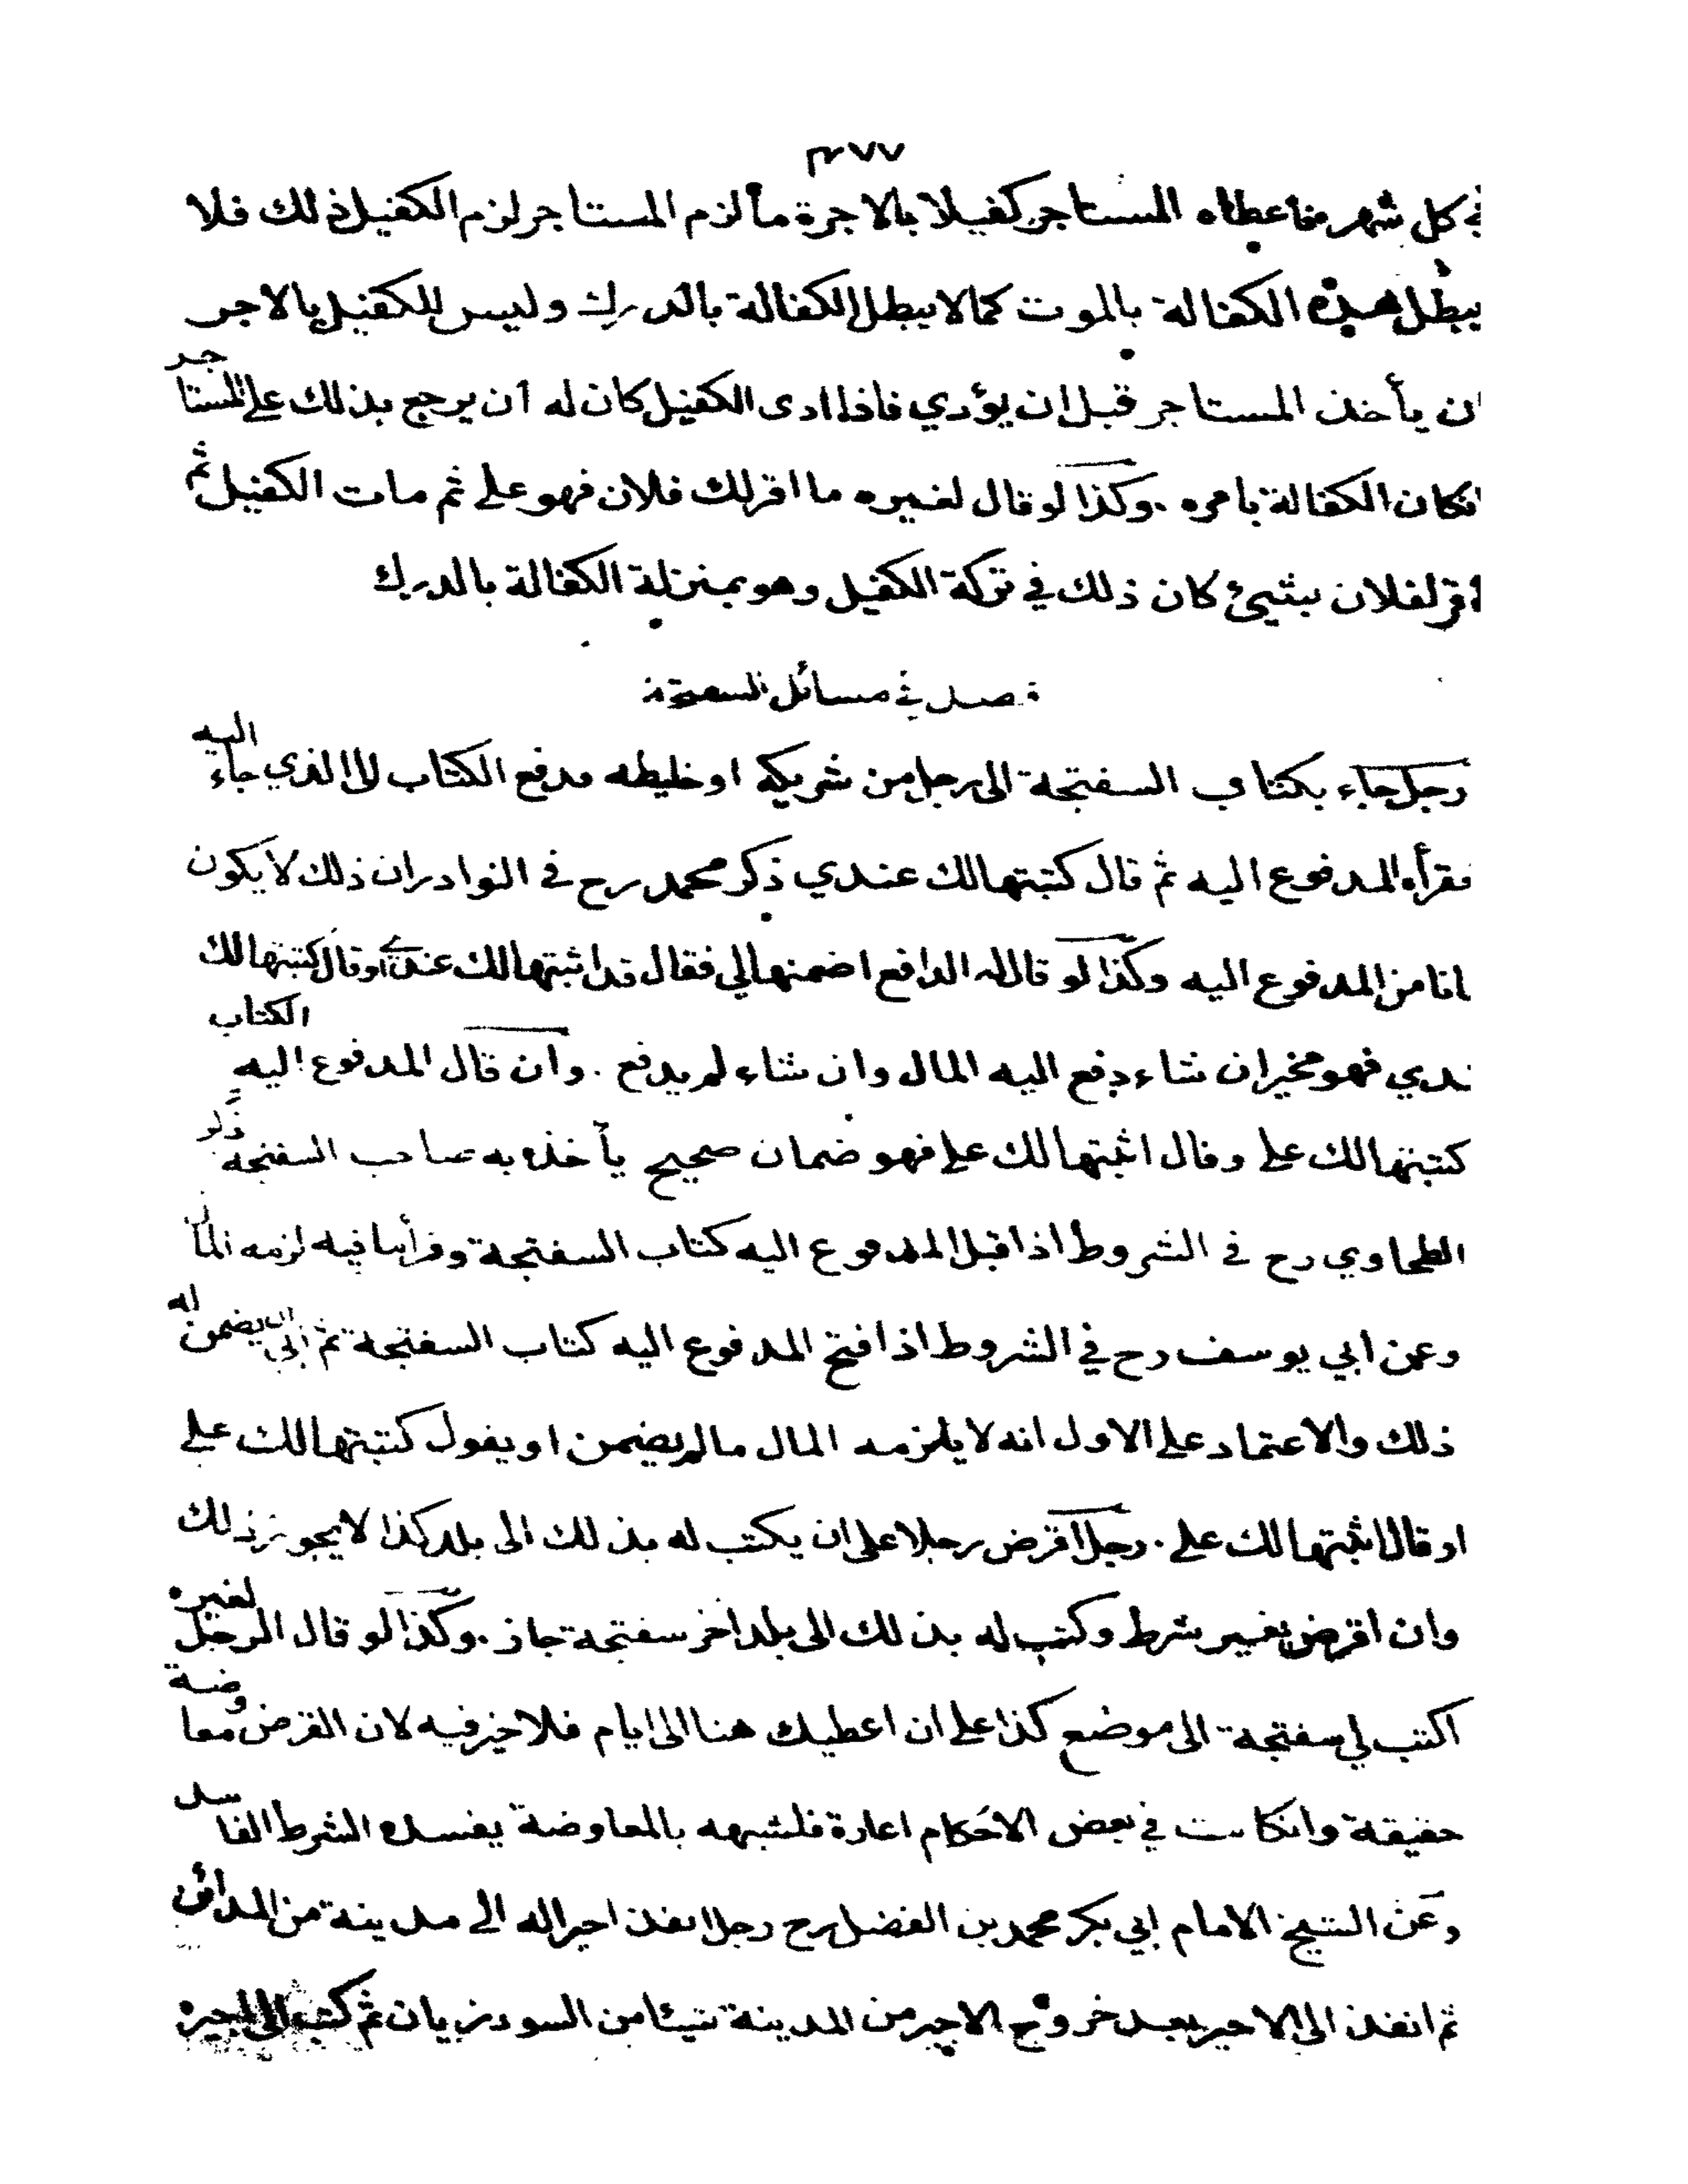 ٣٧٧
كل شهر فاعطاه المستاجر كفيلا بالاجرة ما لزم المستاجر لزم الكفيل ذلك فلا
يبطل هذه الكفالة بالموت كما لا يبطل الكفالة بالدرك وليس للكفيل بالاجر
ان يأخذ المستاجر قبل ان يؤدي فاذا ادى الكفيل كان له ان يرجع بذلك على المستاجر
انكان الكفالة بامره . وكذا لو قال لغيره ما اقر لك فلان فهو علي ثم مات الكفيل ثم
اقر لفلان بشيئ كان ذلك في تركة الكفيل وهو بمنزلة الكفالة بالدرك
فصل في مسائل السفتجة
رجل جاء بكتاب السفتجة الى رجل من شريكه او خليطه فدفع الكتاب الذي جاء اليه
فقرأه المدفوع اليه ثم قال كتبتها لك عندي ذكر محمد رح في النوادر ان ذلك لا يكون
ضمانا من المدفوع اليه وكذا لو قال له الدافع اضمنها لي فقال قد اثبتها لك عندي او قال كتبتها لك
عندي فهو مخير ان شاء دفع اليه المال وان شاء لم يدفع . وان قال المدفوع اليه الكتاب
كتبتها لك علي وقال اثبتها لك علي فهو ضمان صحيح يأخذه به صاحب السفتجة ذكر
الطحاوي رح في الشروط اذا قبل المدفوع اليه كتاب السفتجة وقرأ ما فيه لزمه المال
وعن ابي يوسف رح في الشروط اذا فتح المدفوع اليه كتاب السفتجة ثم ابى ان يضمن له
ذلك والاعتماد على الاول انه لا يلزمه المال ما لم يضمن او يقول كتبتها لك علي
او قال اثبتها لك علي . رجل اقرض رجلا على ان يكتب له بذلك الى بلد كذا لا يجوز ذلك
وان اقرض بغير شرط وكتب له بذلك الى بلد اخر سفتجة جاز . وكذا لو قال الرجل لغيره
اكتب لي سفتجة الى موضع كذا على ان اعطيك هنا الى ايام فلا خير فيه لان القرض معاوضة
حقيقة وانكانت في بعض الاحكام اعارة فلشبهه بالمعاوضة يفسده الشرط الفاسد
وعن الشيخ الامام ابي بكر محمد بن الفضل رح رجل انفذ اجيرا له الى مدينة من المدائن
ثم انفذ الى الاجير بعد خروج الاجير من المدينة شيئا من السودزيان ثم كتب الى اجيره